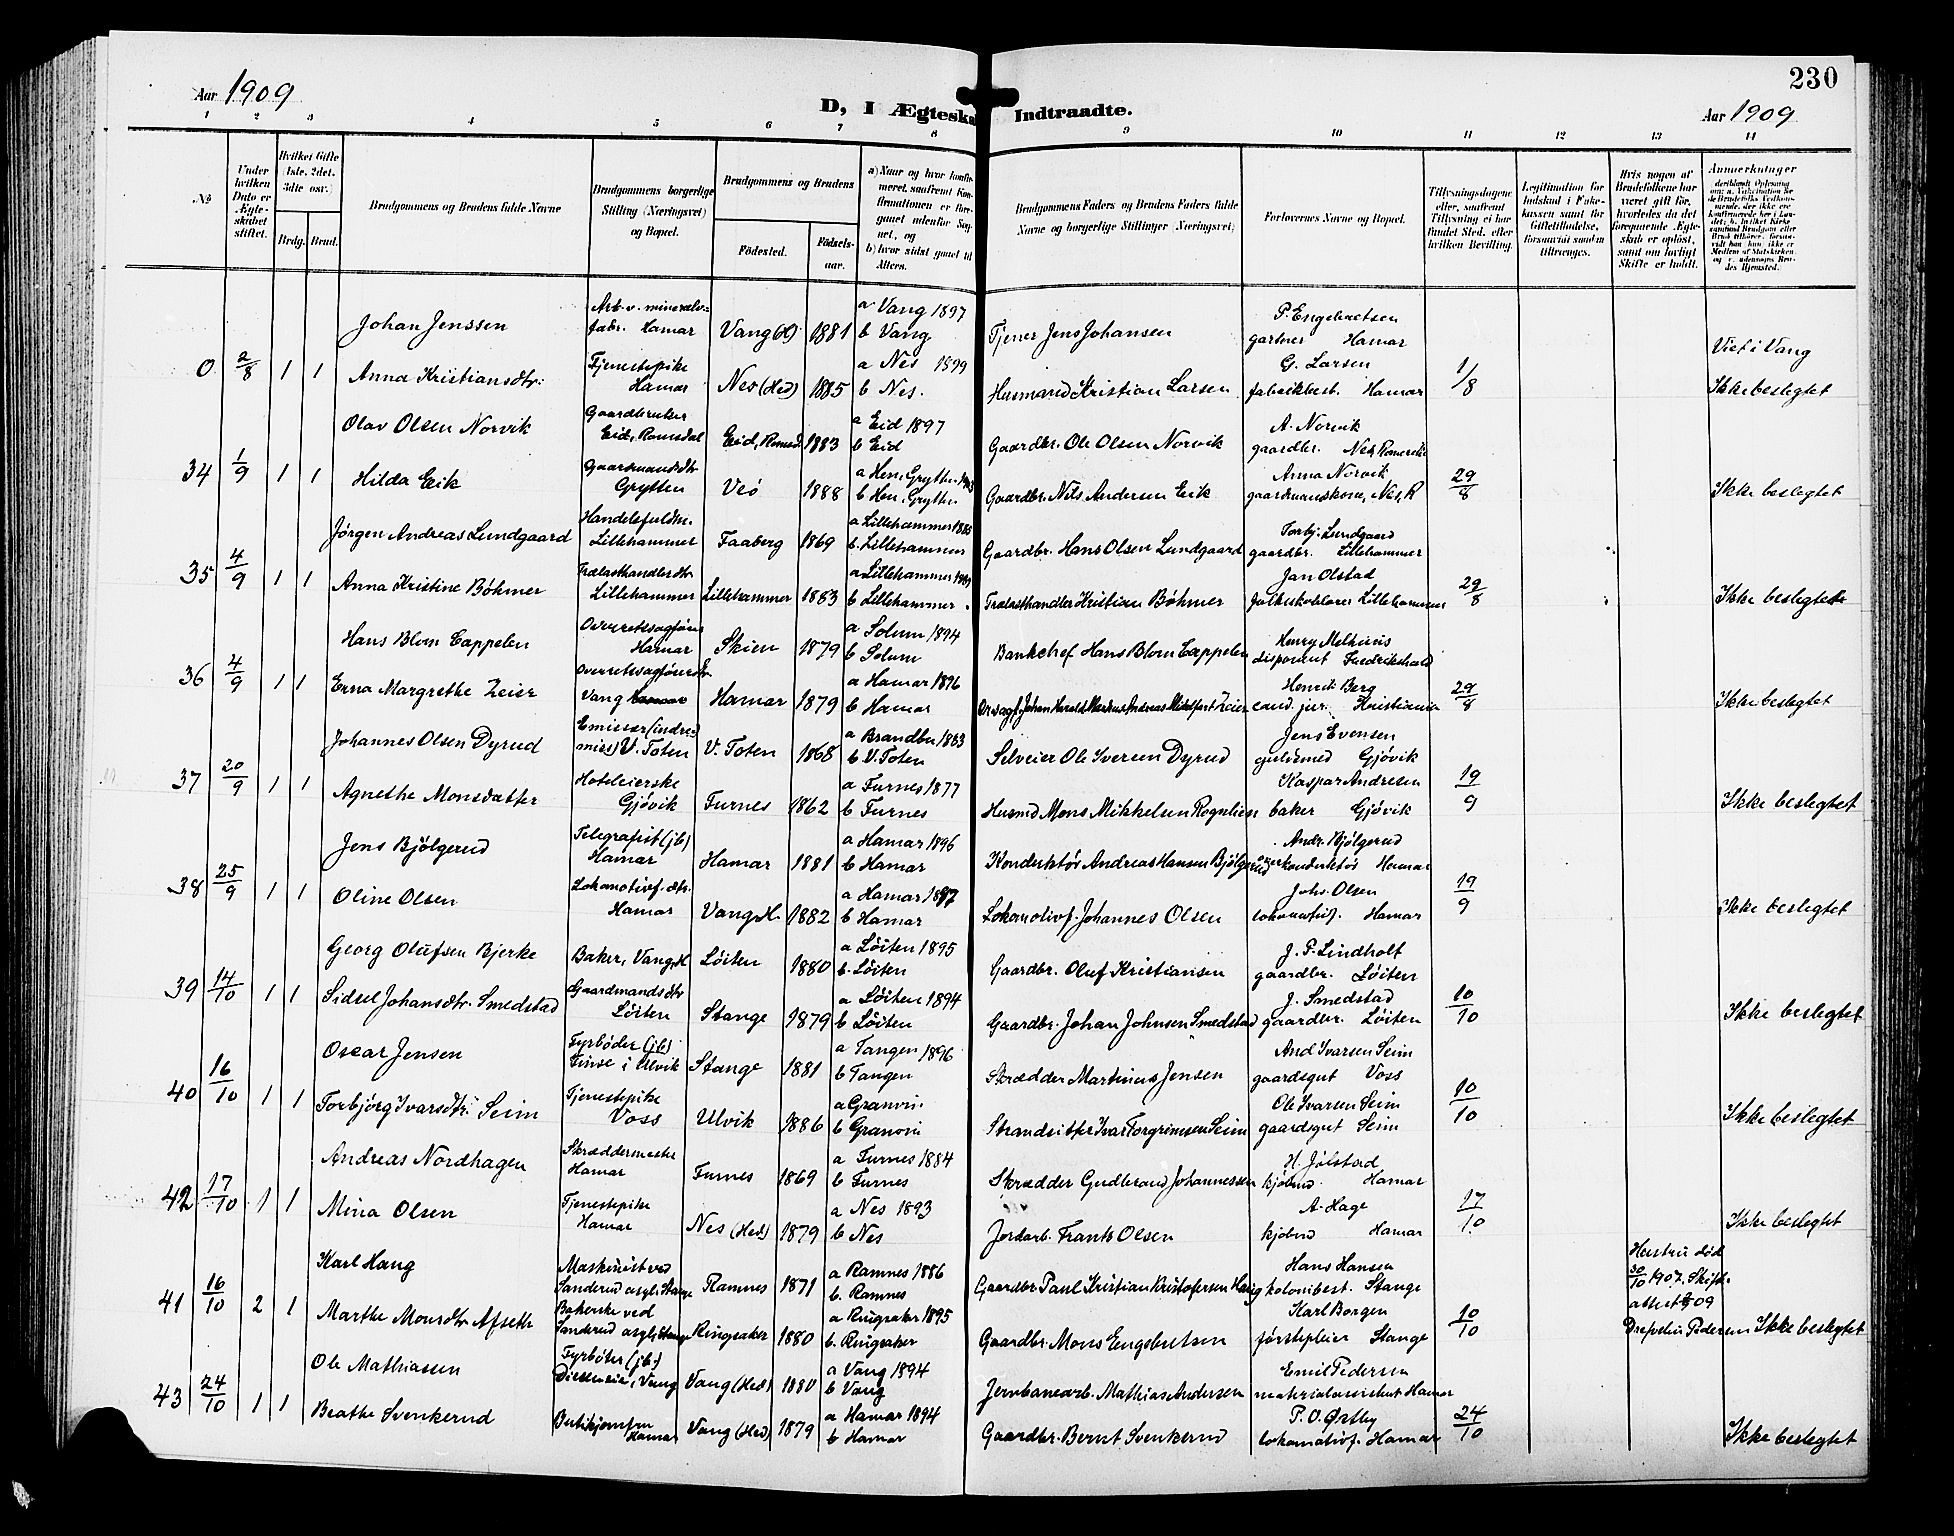 230
Aar 1909
D, I Ægteska Indtraadte.
Aar 1909
1 2 3 4 5 6 7 8 9 10 11 12 13 14
No
Under hvilken Dato er Ægteskabet stiftet.
Hvilket Gifte (1ste, 2det, 3die osv.)
Brdg. Brud.
Brudgommens og Brudens fulde Navne
Brudgommens borgerlige Stilling (Næringsvei) og Bopæl.
Brudgommens og Brudens
Fødested.
Fødsels-aar.
a) Naar og hvor
b) hvor sidst gaaet til Alters.
Brudgommens Faders og Brudens Faders fulde Navne og borgerlige Stillinger (Næringsvei)
Forlovernes Navne og Bopæl.
Tillysningsdagene eller, saafremt Tillysning ei har fundet Sted, efter hvilken Bevilling.
Legitimation for Indskud i Enkekassen samt for Giftetilladelse, forsaavidt saadan tiltrænges.
Hvis nogen af Brudefolkene har været gift før, hvorledes da det foregaaende Ægteskab er opløst, samt om lovligt Skifte er holdt.
Anmærkninger
Johan Jenssen
Arb. v. mineralv.
fabr. Hamar
Vang (H) 1881
a Vang 1897
b Vang
Tjener Jens Johansen
P. Engebretsen
gartner Hamar
Viet i Vang
0 2/8 1 1
Anna Kristiansdtr.
Tjenestepike
Hamar
Nes (Hed) 1885
a Nes 1899
b Nes.
Husmand Kristian Larsen
G. Larsen
fabrikbest. Hamar
1/8
Ikke beslegtet
Olav Olsen Norvik
Gaardbruker
Eid, Romsdal
Eid, Romsd. 1883
a Eid 1897
b Eid
Gaardbr. Ole Olsen Norvik
A. Norvik
gaardbr. Nes, Romerike
34 1/9 1 1
Hilda Eik
Gaardmandsdtr
Grytten
Veö 1888
a Hen, Grytten
b Hen. Grytten
Gaardbr. Nils Andersen Eik
Anna Norvik
gaardmandskone, Nes, R
29/8
Ikke beslegtet
Jörgen Andreas Lundgaard
Handelsfuldm.
Lillehammer
Faaberg 1869
a Lillehammer
b. Lillehammer
Gaardbr. Hans Olsen Lundgaard
Torbj. Lundgaard
gaardbr. Lillehammer
35 4/9 1 1
Anna Kristine Böhmer
Trælasthandlerdtr
Lillehammer
Lillehammer 1883
a Lillehammer
b Lillehammer
Trælasthandler Kristian Böhmer
Jan Olstad
folkeskolelærer Lillehammer
29/8
Ikke beslegtet
Hans Blom Cappelen
Overretssagförer
Hamar
Skien 1879
a Solum 1894
b Solum
Bankchef Hans Blom Cappelen
Henry Melhuus
disponent Fredrikshald
36 4/9 1 1
Erna Margrethe Zeier
Overretssagförerdtr.
Vang
Hamar 1879
a Hamar 1896
b Hamar
Henrik Berg
cand. jur. Kristiania
29/8
Ikke beslegtet
Johannes Olsen Dyrud
Emissær (indre
miss) V. Toten
V. Toten 1868
a Brandbu 1883
b V. Toten
Selveier Ole Iversen Dyrud
Jens Evensen
guldsmed Gjövik
37 20/9 1 1
Agnethe Monsdatter
Hoteleierske
Gjövik
Furnes 1862
a Furnes 1877
b Furnes
Husmd Mons Mikkelsen Rognlien
Kaspar Andresen
baker Gjövik
19/9
Ikke beslegtet
Jens Bjölgerud
Telegrafist (jb)
Hamar
Hamar 1881
a Hamar 1896
b Hamar
Konduktör Andreas Hansen Bjölgerud
Andr. Bjölgerud
konduktör Hamar
38 25/9 1 1
Oline Olsen
Lokomotivf. dtr.
Hamar
Vang, H. 1882
a Hamar 1897
b Hamar
Lokomotivf. Johannes Olsen
Johs. Olsen
lokomotivf. Hamar
19/9
Ikke beslegtet
Georg Olufsen Bjerke
Baker, Vang, H
Löiten 1880
a Löiten 1895
b. Löiten
Gaardbr. Oluf Kristiansen
J. P. Lindholt
gaardbr. Löiten
39 14/10 1 1
Sidsel Johansdtr. Smedstad
Gaardmandsdtr
Löiten
Stange 1879
a Löiten 1894
b Löiten
Gaardbr. Johan Johnsen Smedstad
J. Smedstad
gaardbr. Löiten
10/10
Ikke beslegtet
Oscar Jensen
Fyrböder (jb)
Finse i Ulvik
Stange 1881
a Tangen 1896
b Tangen
Skrædder Martinus Jensen
And Ivarsen Seim
gaardsgut Voss
40 16/10 1 1
Torbjörg Ivarsdtr. Seim
Tjenestepike
Voss
Ulvik 1886
a Granvin
b Granvin
Strandsitter Ivar Torgrimsen Seim
Ole Ivarsen Seim
gaardsgut Seim
10/10
Ikke beslegtet
Andreas Nordhagen
Skræddermester
Hamar
Furnes 1869
a Furnes 1884
b Furnes
Skrædder Gudbrand Johannessen
H. Jölstad
kjöbmd. Hamar
42 17/10 1 1
Mina Olsen
Tjenestepike
Hamar
Nes (Hed) 1879
a Nes 1893
b Nes
Jordarb. Frants Olsen
A. Hage
kjöbmd Hamar
17/10
Ikke beslegtet
Karl Haug
Maskinist ved
Sanderud asyl, Stange
Ramnes 1871
a Ramnes 1886
b. Ramnes
Gaardbr. Paul Kristian Kristofersen Haug
Hans Hansen
kolonibest. Stange
Hustru död
30/10 1907. Skift.
attest 09
41 16/10 2 1
Marthe Monsdtr Afseth
Bakerske ved
Sanderud asyl, Stange
Ringsaker 1880
a Ringsaker 1895
b. Ringsaker
Gaardbr. Mons Engebretsen
Karl Borgen
förstepleier Stange
10/10
Pedersen Ikke beslegtet
Ole Mathiassen
Fyrböter (jb.)
Vang
Vang (Hed) 1880
a Vang 1894
b Vang
Jernbanearb. Mathias Andersen
Emil Pedersen
Hamar
43 24/10 1 1
Beathe Svenkerud
Butikjomfru
Hamar
Vang (Hed) 1879
a Hamar 1894
b Hamar
Gaardbr. Bernt Svenkerud
P. O. Østby
lokomotivf. Hamar
24/10
Ikke beslegtet